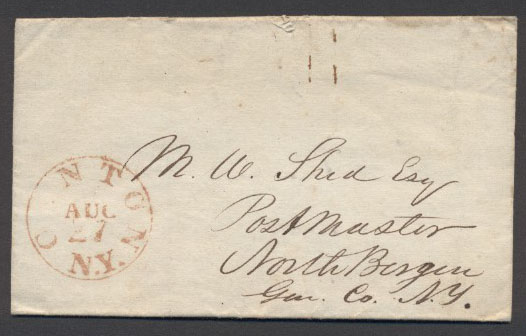 C NTON
AUG
27
N.Y.
M. W. Shed Esq
Post Master
North Bergen
Gen. Co. N.Y.